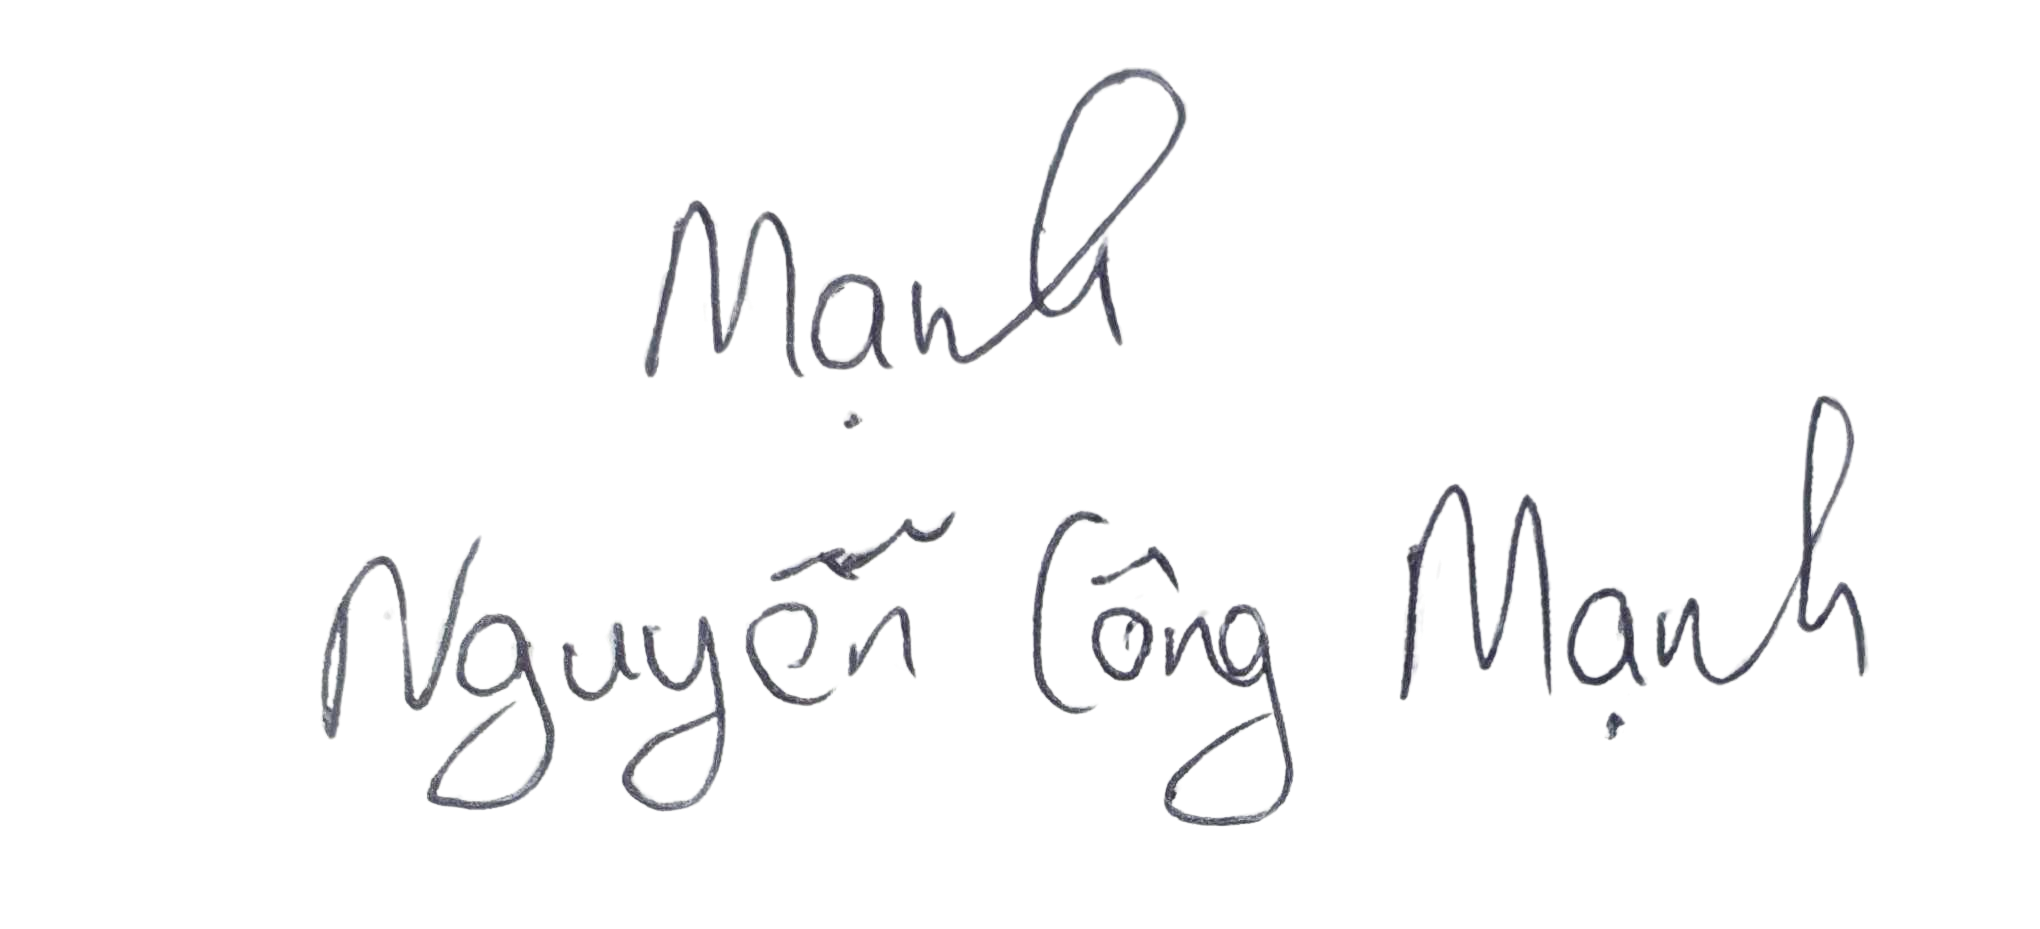 Mạnh
Nguyễn Công Mạnh